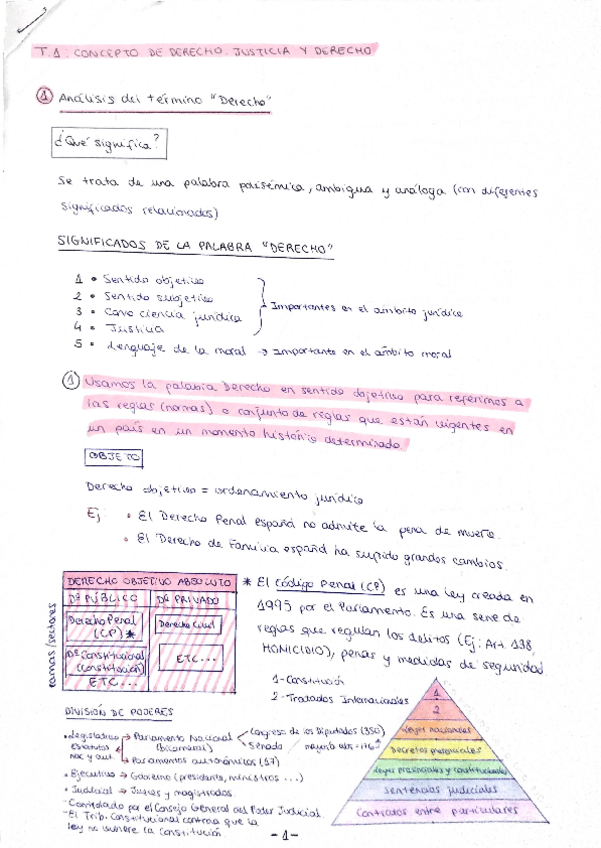 T.1: CONCEPTO DE DERECHO. JUSTICIA Y DERECHO
1 Análisis del término "Derecho"
¿Qué significa?
Se trata de una palabra polisémica, ambigua y análoga (con diferentes
significados relacionados)
SIGNIFICADOS DE LA PALABRA "DERECHO"
1 • Sentido objetivo
2 • Sentido subjetivo
3 • Como ciencia jurídica
4 • Justicia
Importantes en el ámbito jurídico
5 • Lenguaje de la moral → importante en el ámbito moral
1 Usamos la palabra Derecho en sentido objetivo para referirnos a
las reglas (normas) o conjunto de reglas que están vigentes en
un país en un momento histórico determinado
OBJETO
Derecho objetivo = ordenamiento jurídico
Ej: • El Derecho Penal español no admite la pena de muerte.
• El Derecho de Familia español ha sufrido grandes cambios.
ramas/sectores
DERECHO OBJETIVO ABSOLUTO
Dº PÚBLICO Dº PRIVADO
Derecho Penal (CP) *
Derecho Civil
Dº Constitucional (Constitución)
ETC...
ETC...
* El Código Penal (CP) es una ley creada en
1995 por el Parlamento. Es una serie de
reglas que regulan los delitos (Ej: Art. 138,
HOMICIDIO), penas y medidas de seguridad
1 - Constitución
2 - Tratados Internacionales
1
2
Leyes nacionales
Decretos presidenciales
Leyes provinciales y constitucionales
Sentencias judiciales
Contratos entre particulares
DIVISIÓN DE PODERES
• Legislativo → Parlamento Nacional (bicameral)
Congreso de los Diputados (350)
Senado
mayoría abs = 176
Estatutos nac y aut.
Parlamentos autonómicos (17)
• Ejecutivo → Gobierno (presidente, ministros ...)
• Judicial → Jueces y magistrados.
- Controlado por el Consejo General del Poder Judicial.
- El Trib. Constitucional controla que la
ley no vulnere la Constitución.
- 1 -